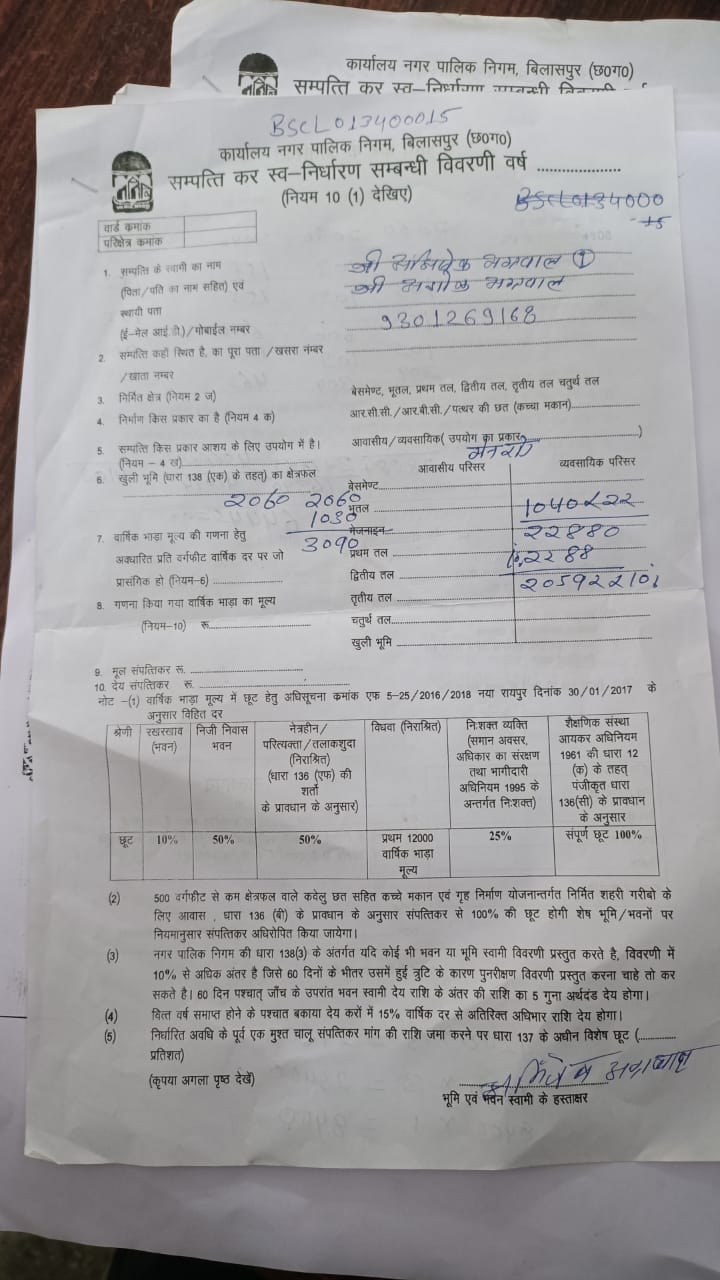 कार्यालय नगर पालिक निगम, बिलासपुर (छ0ग0)
सम्पत्ति कर स्व-निर्धारण सम्बन्धी
BSCL013400015
कार्यालय नगर पालिक निगम, बिलासपुर (छ0ग0)
सम्पत्ति कर स्व-निर्धारण सम्बन्धी विवरणी वर्ष ....................
(नियम 10 (1) देखिए)
BSCL0134000
15
वार्ड कमांक
परिक्षेत्र कमांक
1. सम्पत्ति के स्वामी का नाम
श्री अभिषेक अग्रवाल 1
(पिता/पति का नाम सहित) एवं
श्री अशोक अग्रवाल
स्थायी पता
(ई-मेल आई.डी.)/मोबाईल नम्बर
9301269168
2. सम्पत्ति कहाँ स्थित है, का पूरा पता/खसरा नम्बर
/खाता नम्बर
3. निर्मित क्षेत्र (नियम 2 ज)
बेसमेण्ट, भूतल, प्रथम तल, द्वितीय तल, तृतीय तल चतुर्थ तल
4. निर्माण किस प्रकार का है (नियम 4 क)
आर.सी.सी./आर.बी.सी./पत्थर की छत (कच्चा मकान)....................
5. सम्पत्ति किस प्रकार आशय के लिए उपयोग में है।
आवासीय/व्यवसायिक( उपयोग का प्रकार....................)
(नियम – 4 ख)
आवासीय परिसर
व्यवसायिक परिसर
6. खुली भूमि (धारा 138 (एक) के तहत) का क्षेत्रफल
बेसमेण्ट
2060 2060
भूतल
1040x22
1030
मेजनाइन
22880
3090
7. वार्षिक भाड़ा मूल्य की गणना हेतु
अवधारित प्रति वर्गफीट वार्षिक दर पर जो
प्रथम तल
2288
प्रासंगिक हो (नियम-6) ....................
द्वितीय तल
20592
8. गणना किया गया वार्षिक भाड़ा का मूल्य
तृतीय तल
(नियम-10) रू....................
चतुर्थ तल
खुली भूमि
9. मूल संपत्तिकर रू. ....................
10. देय संपत्तिकर रू. ....................
नोट –(1) वार्षिक भाड़ा मूल्य में छूट हेतु अधिसूचना कमांक एफ 5-25/2016/2018 नया रायपुर दिनांक 30/01/2017 के
अनुसार विहित दर
श्रेणी
रखरखाव (भवन)
निजी निवास भवन
नेत्रहीन/ परित्यक्ता/तलाकशुदा (निराश्रित) (धारा 136 (एफ) की शर्तो के प्रावधान के अनुसार)
विधवा (निराश्रित)
नि:शक्त व्यक्ति (समान अवसर, अधिकार का संरक्षण तथा भागीदारी अधिनियम 1995 के अन्तर्गत नि:शक्त)
शैक्षणिक संस्था आयकर अधिनियम 1961 की धारा 12 (क) के तहत् पंजीकृत धारा 136(सी) के प्रावधान के अनुसार
छूट
10%
50%
50%
प्रथम 12000 वार्षिक भाड़ा मूल्य
25%
संपूर्ण छूट 100%
(2) 500 वर्गफीट से कम क्षेत्रफल वाले कवेलु छत सहित कच्चे मकान एवं गृह निर्माण योजनान्तर्गत निर्मित शहरी गरीबो के
लिए आवास , धारा 136 (बी) के प्रावधान के अनुसार संपत्तिकर से 100% की छूट होगी शेष भूमि/भवनों पर
नियमानुसार संपत्तिकर अधिरोपित किया जायेगा।
(3) नगर पालिक निगम की धारा 138(3) के अंतर्गत यदि कोई भी भवन या भूमि स्वामी विवरणी प्रस्तुत करते है, विवरणी में
10% से अधिक अंतर है जिसे 60 दिनों के भीतर उसमें हुई त्रुटि के कारण पुनरीक्षण विवरणी प्रस्तुत करना चाहे तो कर
सकते है। 60 दिन पश्चात् जाँच के उपरांत भवन स्वामी देय राशि के अंतर की राशि का 5 गुना अर्थदंड देय होगा।
(4) वित्त वर्ष समाप्त होने के पश्चात बकाया देय करों में 15% वार्षिक दर से अतिरिक्त अधिभार राशि देय होगा।
(5) निर्धारित अवधि के पूर्व एक मुश्त चालू संपत्तिकर मांग की राशि जमा करने पर धारा 137 के अधीन विशेष छूट (...........
प्रतिशत)
(कृपया अगला पृष्ठ देखें)
अभिषेक अग्रवाल
भूमि एवं भवन स्वामी के हस्ताक्षर